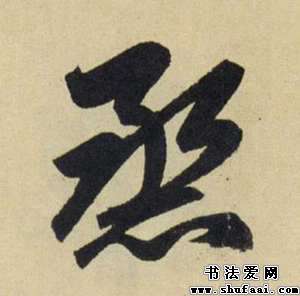 烝
书法爱网
www.shufaai.com